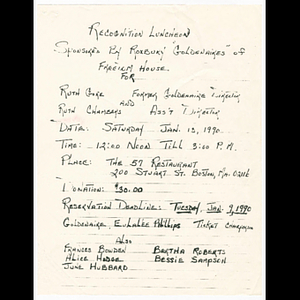 Recognition Luncheon
Sponsored By Roxbury "Goldenaires" of
Freedom House
FOR
Ruth Goke Former Goldenaire Director
AND
Ruth Chambers Ass't Director
Date: Saturday Jan. 13, 1990
Time: 12:00 Noon Till 3:00 P.M.
Place: The 57 Restaurant
200 Stuart St. Boston, Ma. 02116
Donation: $30.00
Reservation Deadline: Tuesday, Jan. 9, 1990
Goldenaire Eulalee Phillips Ticket Chairperson
Also
Frances Bowden Bertha Roberts
Alice Hodge Bessie Sampson
June Hubbard